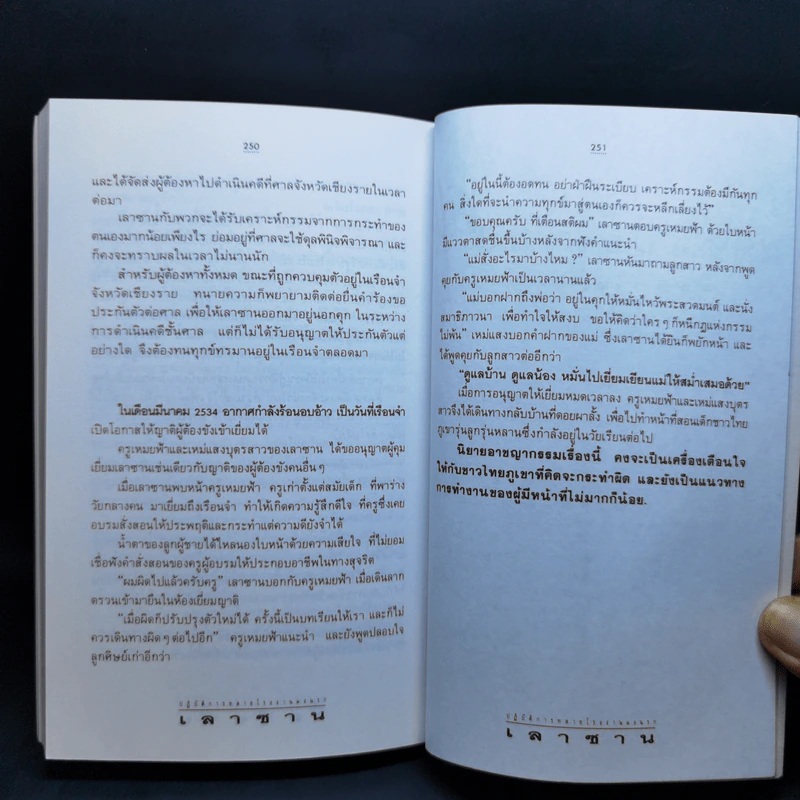 250
และได้จัดส่งผู้ต้องหาไปดำเนินคดีที่ศาลจังหวัดเชียงรายในเวลา
ต่อมา
เลาซานกับพวกจะได้รับเคราะห์กรรมจากการกระทำของ
ตนเองมากน้อยเพียงไร ย่อมอยู่ที่ศาลจะใช้ดุลพินิจพิจารณา และ
ก็คงจะทราบผลในเวลาไม่นานนัก
สำหรับผู้ต้องหาทั้งหมด ขณะที่ถูกควบคุมตัวอยู่ในเรือนจำ
จังหวัดเชียงราย ทนายความก็พยายามติดต่อยื่นคำร้องขอ
ประกันตัวต่อศาล เพื่อให้เลาซานออกมาอยู่นอกคุก ในระหว่าง
การดำเนินคดีชั้นศาล แต่ก็ไม่ได้รับอนุญาตให้ประกันตัวแต่
อย่างใด จึงต้องทนทุกข์ทรมานอยู่ในเรือนจำตลอดมา
ในเดือนมีนาคม 2534 อากาศกำลังร้อนอบอ้าว เป็นวันที่เรือนจำ
เปิดโอกาสให้ญาติผู้ต้องขังเข้าเยี่ยมได้
ครูเหมยฟ้าและเหม่แสงบุตรสาวของเลาซาน ได้ขออนุญาตผู้คุม
เยี่ยมเลาซานเช่นเดียวกับญาติของผู้ต้องขังคนอื่นๆ
เมื่อเลาซานพบหน้าครูเหมยฟ้า ครูเก่าตั้งแต่สมัยเด็ก ที่พาร่าง
วัยกลางคน มาเยี่ยมถึงเรือนจำ ทำให้เกิดความรู้สึกดีใจ ที่ครูซึ่งเคย
อบรมสั่งสอนให้ประพฤติและกระทำแต่ความดียังจำได้
น้ำตาของลูกผู้ชายได้ไหลนองใบหน้าด้วยความเสียใจ ที่ไม่ยอม
เชื่อฟังคำสั่งสอนของครูผู้อบรมให้ประกอบอาชีพในทางสุจริต
"ผมผิดไปแล้วครับครู" เลาซานบอกกับครูเหมยฟ้า เมื่อเดินลาก
ตรวนเข้ามายืนในห้องเยี่ยมญาติ
"เมื่อผิดก็ปรับปรุงตัวใหม่ได้ ครั้งนี้เป็นบทเรียนให้เรา และก็ไม่
ควรเดินทางผิดๆต่อไปอีก" ครูเหมยฟ้าแนะนำ และยังพูดปลอบใจ
ลูกศิษย์เก่าอีกว่า
เลาซาน
251
"อยู่ในนี้ต้องอดทน อย่าฝ่าฝืนระเบียบ เคราะห์กรรมต้องมีกันทุก
คน สิ่งใดที่จะนำความทุกข์มาสู่ตนเองก็ควรจะหลีกเลี่ยงไว้"
"ขอบคุณครับ ที่เตือนสติผม" เลาซานตอบครูเหมยฟ้า ด้วยใบหน้า
มีแววตาสดชื่นขึ้นบ้างหลังจากฟังคำแนะนำ
"แม่สั่งอะไรมาบ้างไหม ?" เลาซานหันมาถามลูกสาว หลังจากพูด
คุยกับครูเหมยฟ้าเป็นเวลานานแล้ว
"แม่บอกฝากถึงพ่อว่า อยู่ในคุกให้หมั่นไหว้พระสวดมนต์ และนั่ง
สมาธิภาวนา เพื่อทำใจให้สงบ ขอให้คิดว่าใครๆก็หนีกฎแห่งกรรม
ไม่พ้น" เหม่แสงบอกคำฝากของแม่ ซึ่งเลาซานได้ยินก็พยักหน้า และ
ได้พูดคุยกับลูกสาวต่ออีกว่า
"ดูแลบ้าน ดูแลน้อง หมั่นไปเยี่ยมเยียนแม่ให้สม่ำเสมอด้วย"
เมื่อการอนุญาตให้เยี่ยมหมดเวลาลง ครูเหมยฟ้าและเหม่แสงบุตร
สาวจึงได้เดินทางกลับบ้านที่ดอยผาลั้ง เพื่อไปทำหน้าที่สอนเด็กชาวไทย
ภูเขารุ่นลูกรุ่นหลานซึ่งกำลังอยู่ในวัยเรียนต่อไป
นิยายอาชญากรรมเรื่องนี้ คงจะเป็นเครื่องเตือนใจ
ให้กับชาวไทยภูเขาที่คิดจะกระทำผิด และยังเป็นแนวทาง
การทำงานของผู้มีหน้าที่ไม่มากก็น้อย.
เลาซาน